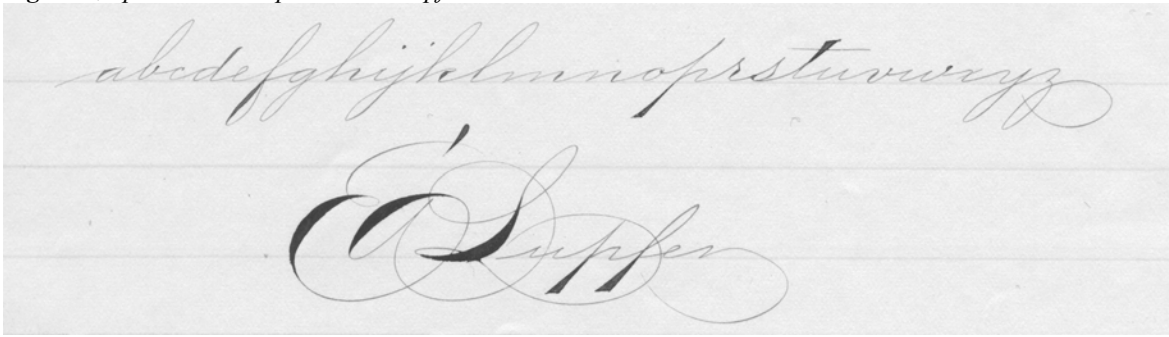 abcdefghijklmnoprstuvwxyz
EALupfer